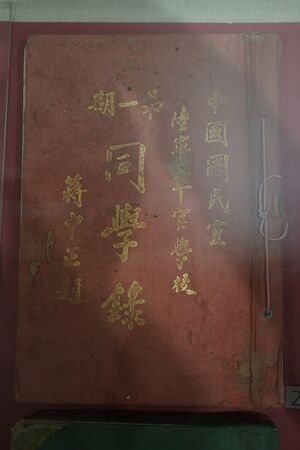 中國國民黨
陸軍軍官學校
第一期
同學錄
蔣中正題